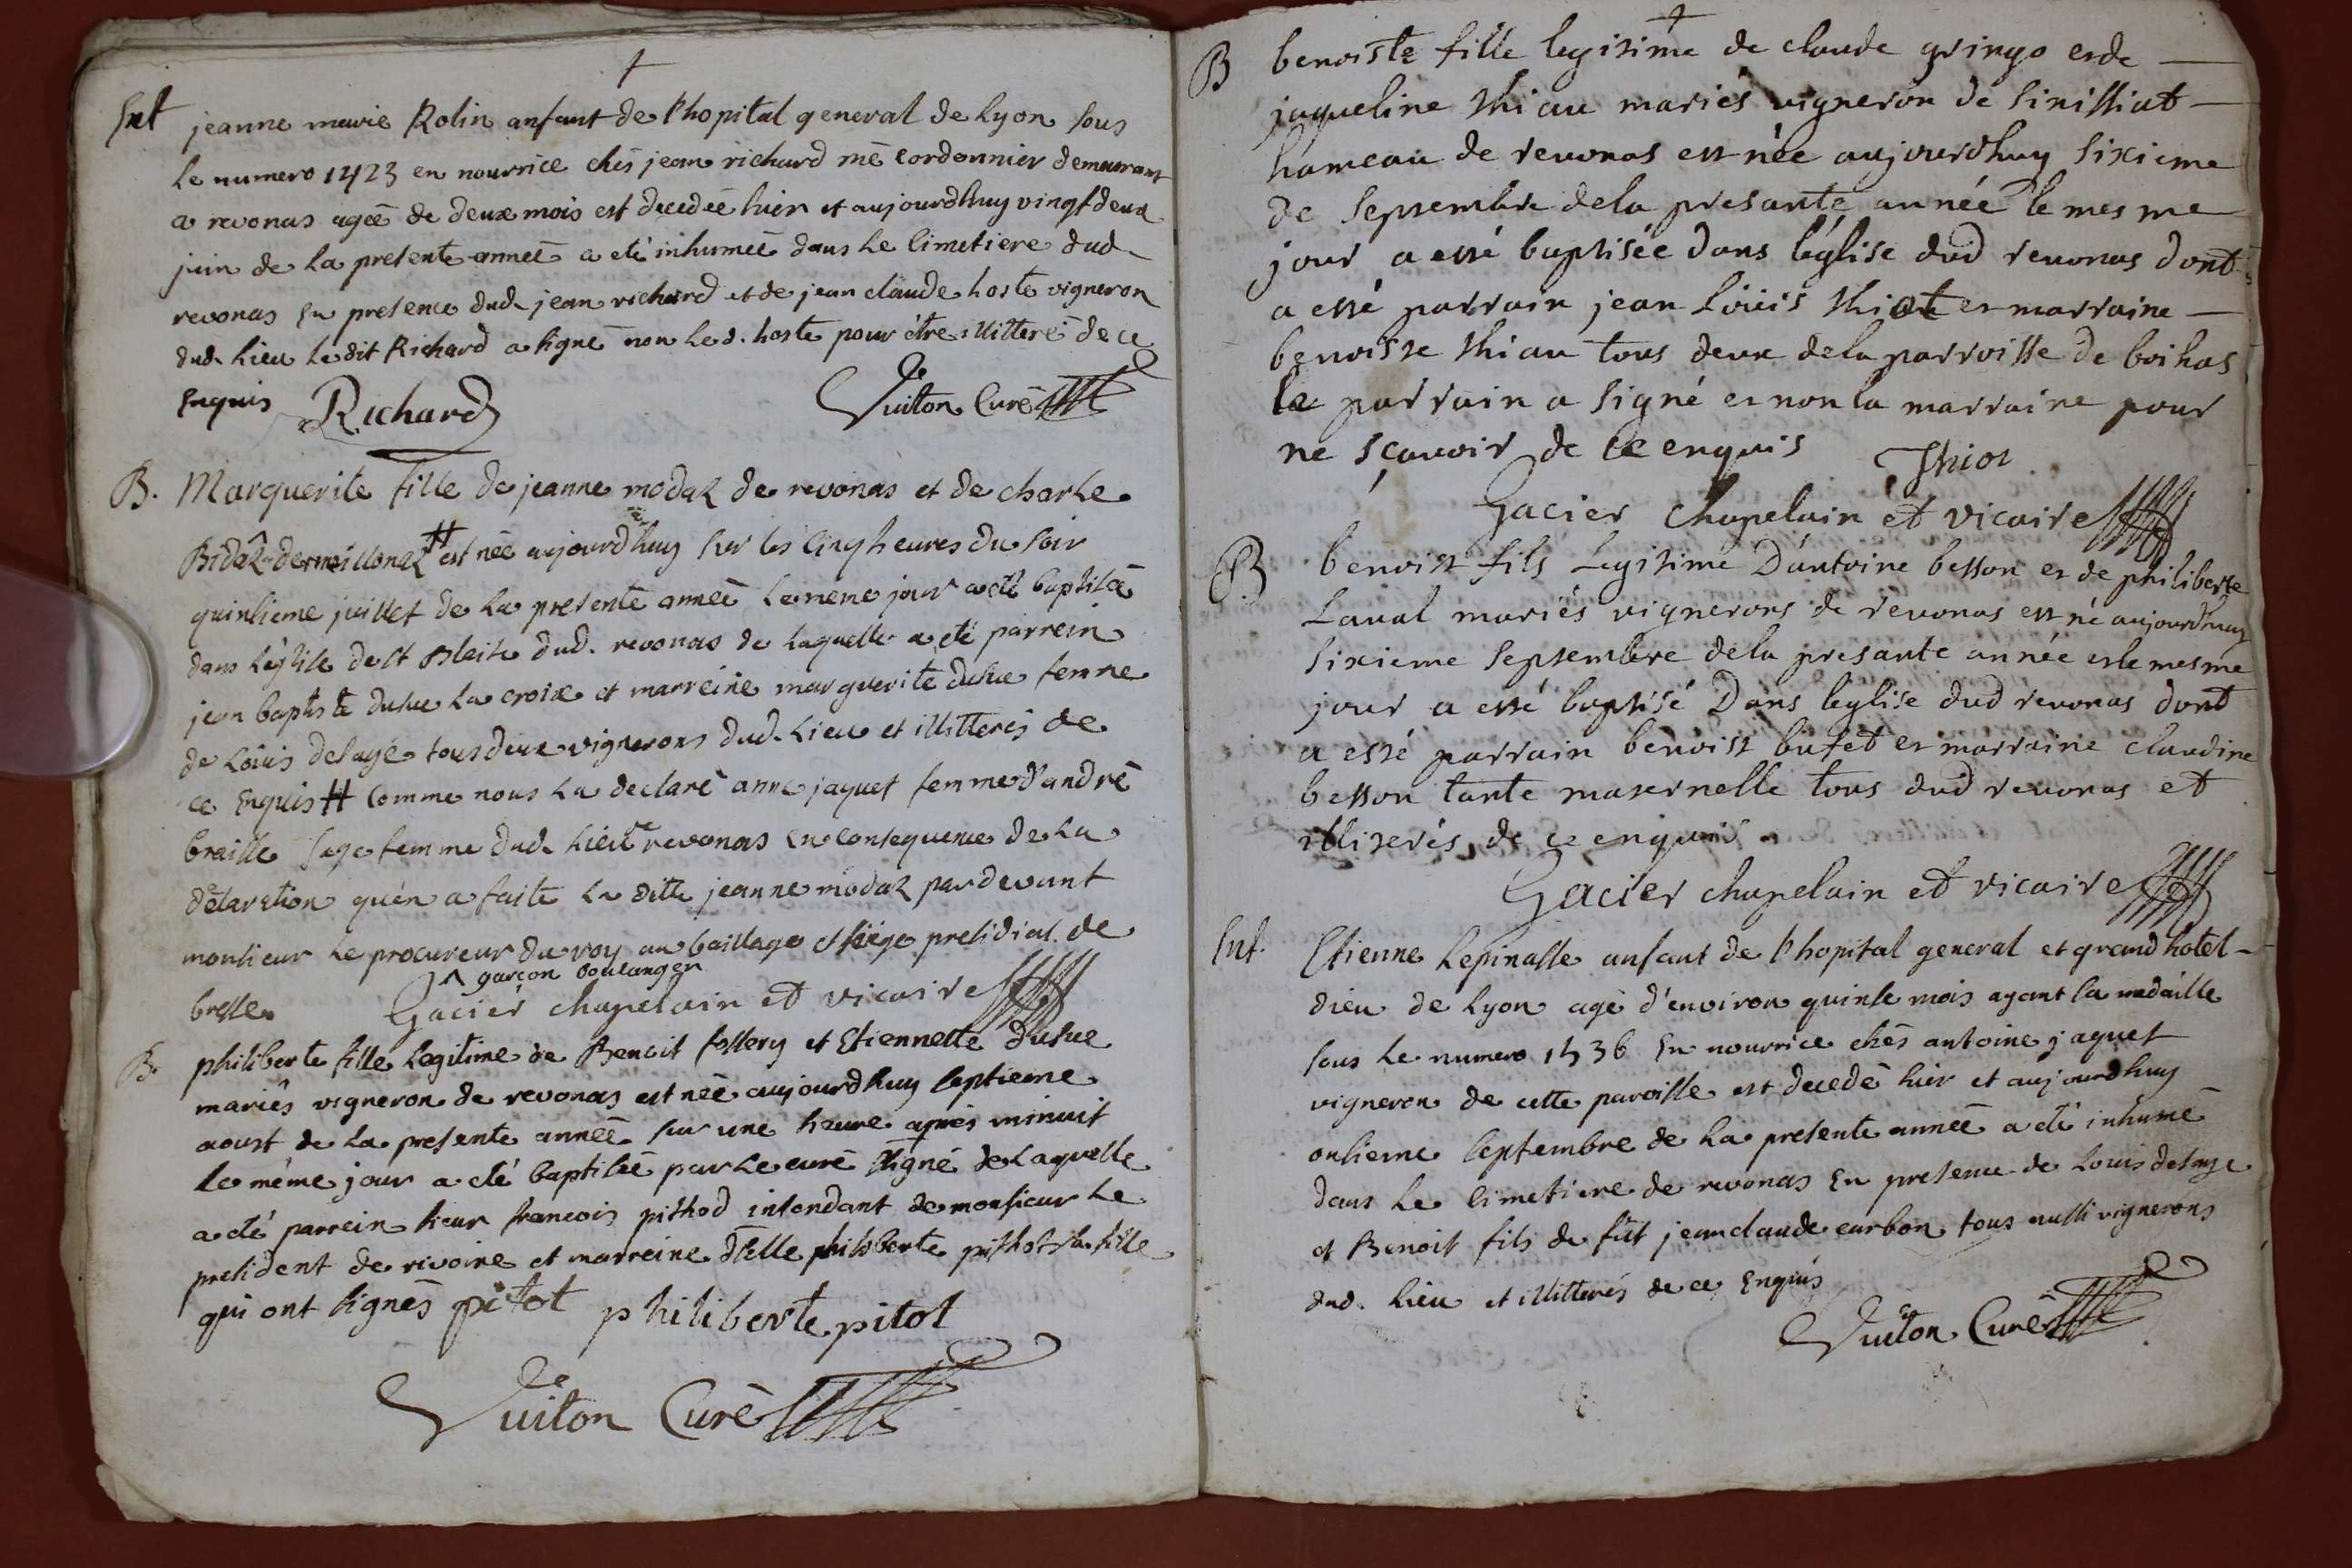 †
Ent jeanne marie Rolin anfant de l'hopital general de Lyon sous
le numero 1423 en nourrice chés jean richard me cordonnier demeurant
a revonas ageé de deux mois est decedeé hier et aujourdhuy vingt deux
juin de la presente anneé a eté inhumeé dans le cimetiere dud
revonas en presence dud. jean richard et de jean claude hoste vigneron
dud. lieu ledit Richard a signé non led. hoste pour être illitteré de ce
enquis Richard Vuiton Curé
B. Marguerite fille de jeanne modaz de revonas et de charle
Bidaz de meillonaz # est neé aujourdhuy sur les cinq heures du soir
quinsieme juillet de la presente anneé le meme jour a eté baptiseé
dans leglise de st Blaise dud. revonas de laquelle a eté parrein
jean baptiste dusue la croix et marreine marguerite dusue femme
de Loüis delaye tous deux vignerons dud. lieu et illitterés de
ce enquis # comme nous la declaré anne jaquet femme d'andré
braille sage femme dud. lieu de revonas en consequence de la
declaration qu'en a faite la ditte jeanne modaz pardevant
monsieur le procureur du roy au baillage et siége presidial de
^ garçon boulanger
bresse. Gacier chapelain et vicaire
B. philiberte fille legitime de Benoit follery et Etiennette dusue
mariés vigneron de revonas est neé aujourdhuy septieme
aoust de la presente anneé sur une heure aprés minuit
le même jour a eté baptiseé par le curé signé de laquelle
a eté parrein sieur francois pithod intendant de monsieur le
president de rivoire et marreine dlelle philiberte pithot sa fille
qui ont signés pitot philiberte pitot
Vuiton Curé
†
B benoiste fille legitime de claude gringo et de
jaqueline thiau mariés vigneron de sinissiat
hameau de revonas est née aujourdhuy sixieme
de septembre dela presante année le mesme
jour a esté baptisée dans l'église dud revonas dont
a esté parrain jean loüis thiot et marraine
benoiste thiau tous deux dela parroisse de bohas
le parrain a signé et non la marraine pour
ne sçavoir de ce enquis Thiot
Gacier chapelain et vicaire
B benoist fils legitime D'antoine besson et de philiberte
Laval mariés vignerons de revonas est né aujourdhuy
sixieme septembre dela presante année et le mesme
jour a esté baptisé Dans leglise dud revonas dont
a esté parrain benoist bufet et marraine claudine
besson tante maternelle tous dud revonas et
illiterés de ce enquis
Gacier chapelain et vicaire
Ent. Etienne Lepinasse anfant de l'hopital general et grand hotel-
dieu de Lyon agé d'environ quinse mois ayant la medaille
sous le numero 1536 en nourrice chés antoine jaquet
vigneron de cette paroisse est decedé hier et aujourdhuy
onsieme septembre de la presente anneé a eté inhumé
dans le cimetiere de revonas en presence de Louis delaye
et Benoit fils de fût jean claude carbon tous aussi vignerons
dud. lieu et illitterés de ce enquis
Vuiton Curé